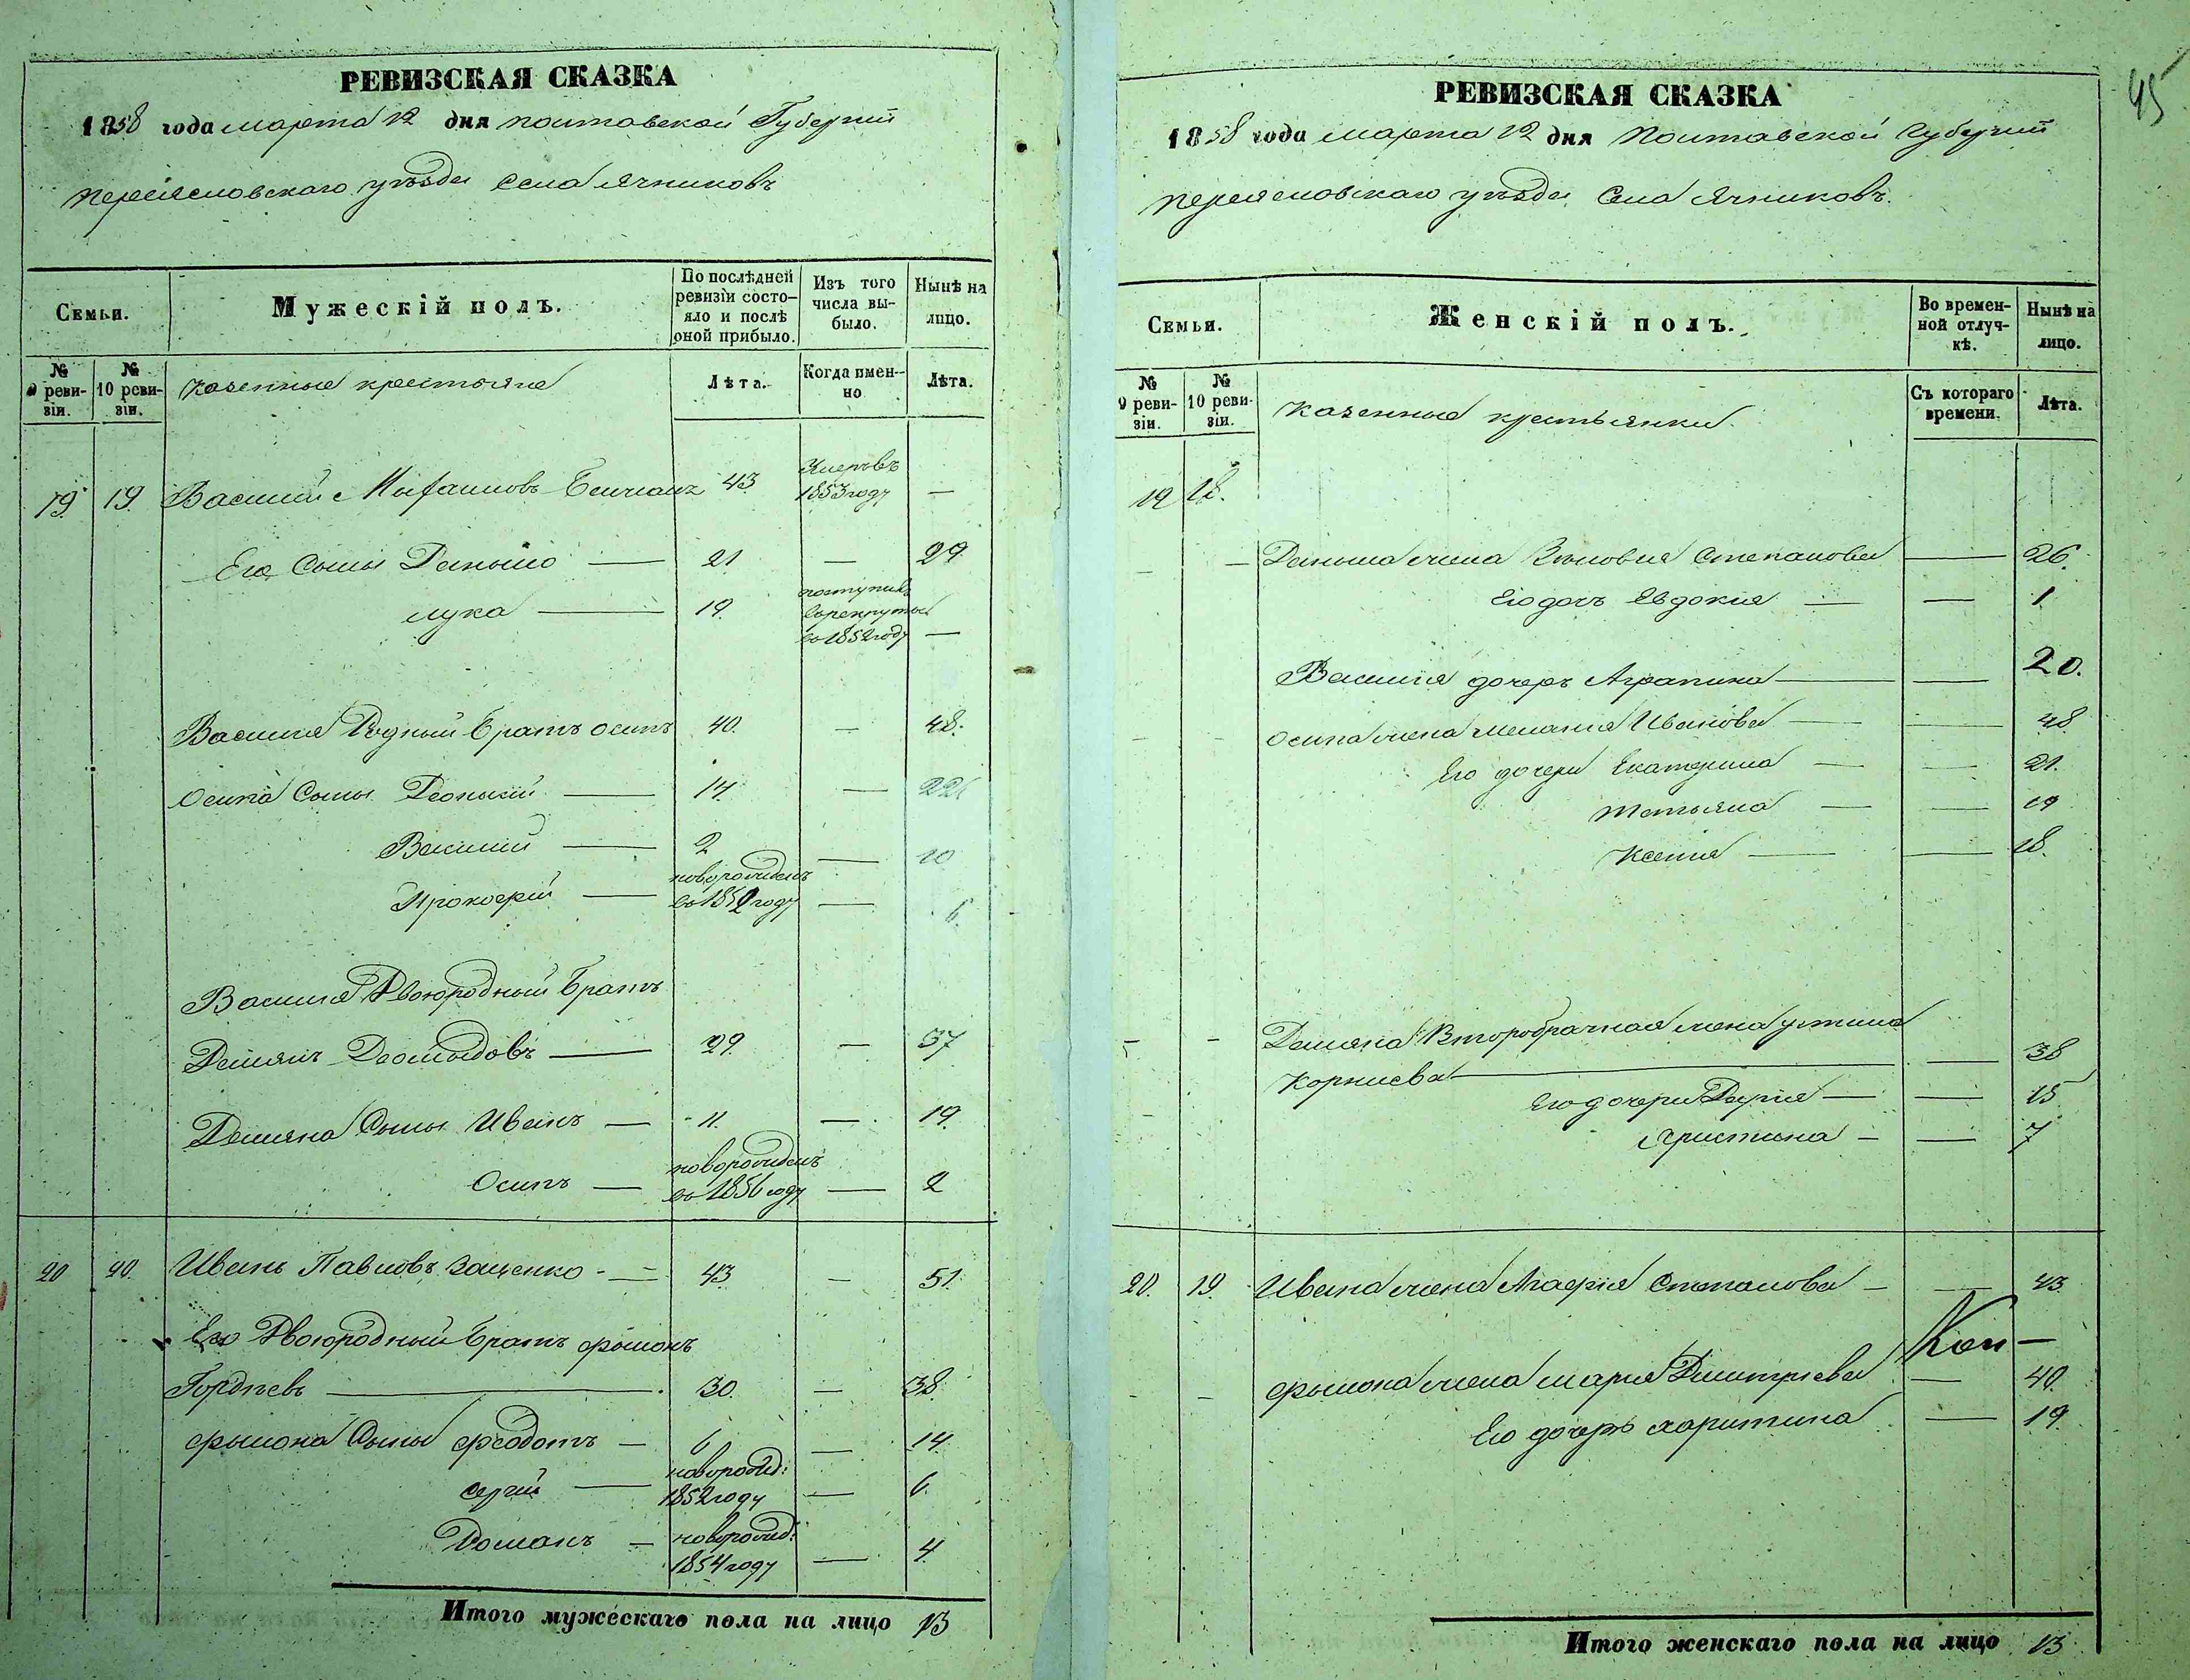 РЕВИЗСКАЯ СКАЗКА
1858 года марта 12 дня Полтавской Губернии
Переяславского уезда села Ячников
Семьи.
Мужескій полъ.
По послѣдней ревизіи состо-
яло и послѣ оной прибыло.
Изъ того числа вы-
было.
Нынѣ на лицо.
№ 9 реви-
зіи.
№ 10 реви-
зіи.
Казенные крестьяне
Лѣта.
Когда имен-
но
Лѣта.
19. 19. Василий 43 Умеръ въ 1853 году —
Его Сыны Даныло — 21 — 29
Лука — 19. поступилъ в рекруты в 1852 году —
Василия Родный братъ Осипъ 40. — 48.
Осипа Сыны Леонтий — 14. — 22
Василий — 2 — 10
Прокофий — новорожденъ в 1852 году — 6.
Василия Двоюродный братъ
Демянъ Деомыдовъ — 29. — 37
Демяна Сыны Иванъ — 11. — 19.
Осипъ — новорожденъ в 1856 году — 2
20 20. Иванъ Павловъ Заценко — 43 — 51.
Его Двоюродный братъ Фылонъ
Гордѣевъ — 30. — 38.
Фылона Сыны Феодотъ — 6 — 14.
Сергий — новорожд: 1852 году — 6.
Романъ — новорожд: 1854 году — 4.
Итого мужескаго пола на лицо 13
45
РЕВИЗСКАЯ СКАЗКА
1858 года марта 12 дня Полтавской Губернии
Переяславского уезда Села Ячников.
Семьи.
Женскій полъ.
Во времен-
ной отлуч-
кѣ.
Нынѣ на лицо.
№ 9 реви-
зіи.
№ 10 реви-
зіи.
Казенные крестьянки
Съ котораго времени.
Лѣта.
19 18.
— — Даныла жена Степанова — 26.
Его дочь Евдокия — — 1.
Василия дочерь Аграпина — — 20.
— — Осипа жена Мелания Иванова — — 48.
Его дочери Екатерина — — 21.
Татьяна — — 19
Ксения — — 18.
— — Демяна Второбрачная жена Устина
Корниева — — 38
Его дочери Дария — — 15
Христина — — 7
20. 19. Ивана жена Агафия Степанова — — 43
— — Фылона жена Мария Дмитриева — 40.
Его дочерь Харитина — 19.
Итого женскаго пола на лицо 13.